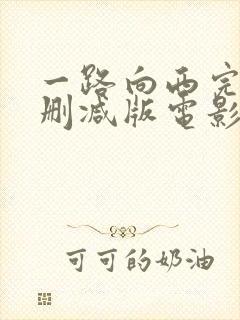 一路向西完
删减版电影
可可的奶油